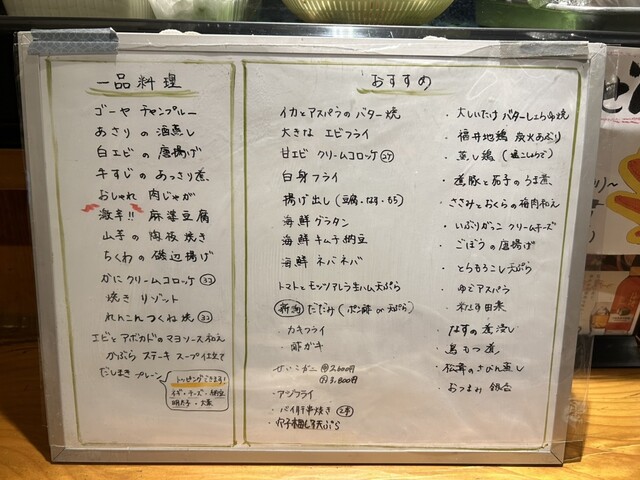 一品料理
ゴーヤ チャンプルー
あさりの酒蒸し
白エビの唐揚げ
牛すじのあっさり煮
おしゃれ 肉じゃが
激辛!! 麻婆豆腐
山芋の 焼き
ちくわの 磯辺揚げ
かにクリームコロッケ
焼き リゾット
れんこんつくね焼
エビとアボカドのマヨソース和え
かぶら ステーキ スープ仕立て
だしまき プレーン
トッピングできます!
ネギ・チーズ・納豆
明太子・大葉
おすすめ
イカとアスパラのバター焼
大きな エビフライ
甘エビ クリームコロッケ
白身フライ
揚げ出し(豆腐・なす・もち)
海鮮グラタン
海鮮キムチ納豆
海鮮ネバネバ
トマトとモッツァレラ生ハム天ぷら
だだみ(ポン酢or天ぷら)
・カキフライ
・酢ガキ
せいこがに 2,600円
3,800円
・アジフライ
・バイ貝串焼き
天ぷら
・大しいたけ バターしょうゆ焼
・福井地鶏 炭火あぶり
・蒸し鶏
・煮豚と茄子のうま煮
・ささみとおくらの梅肉和え
・いぶりがっこ クリームチーズ
・ごぼうの唐揚げ
・とうもろこし天ぷら
・ゆでアスパラ
・なすの煮浸し
・鳥もつ煮
・松茸のさびん蒸し
・おつまみ 銀杏